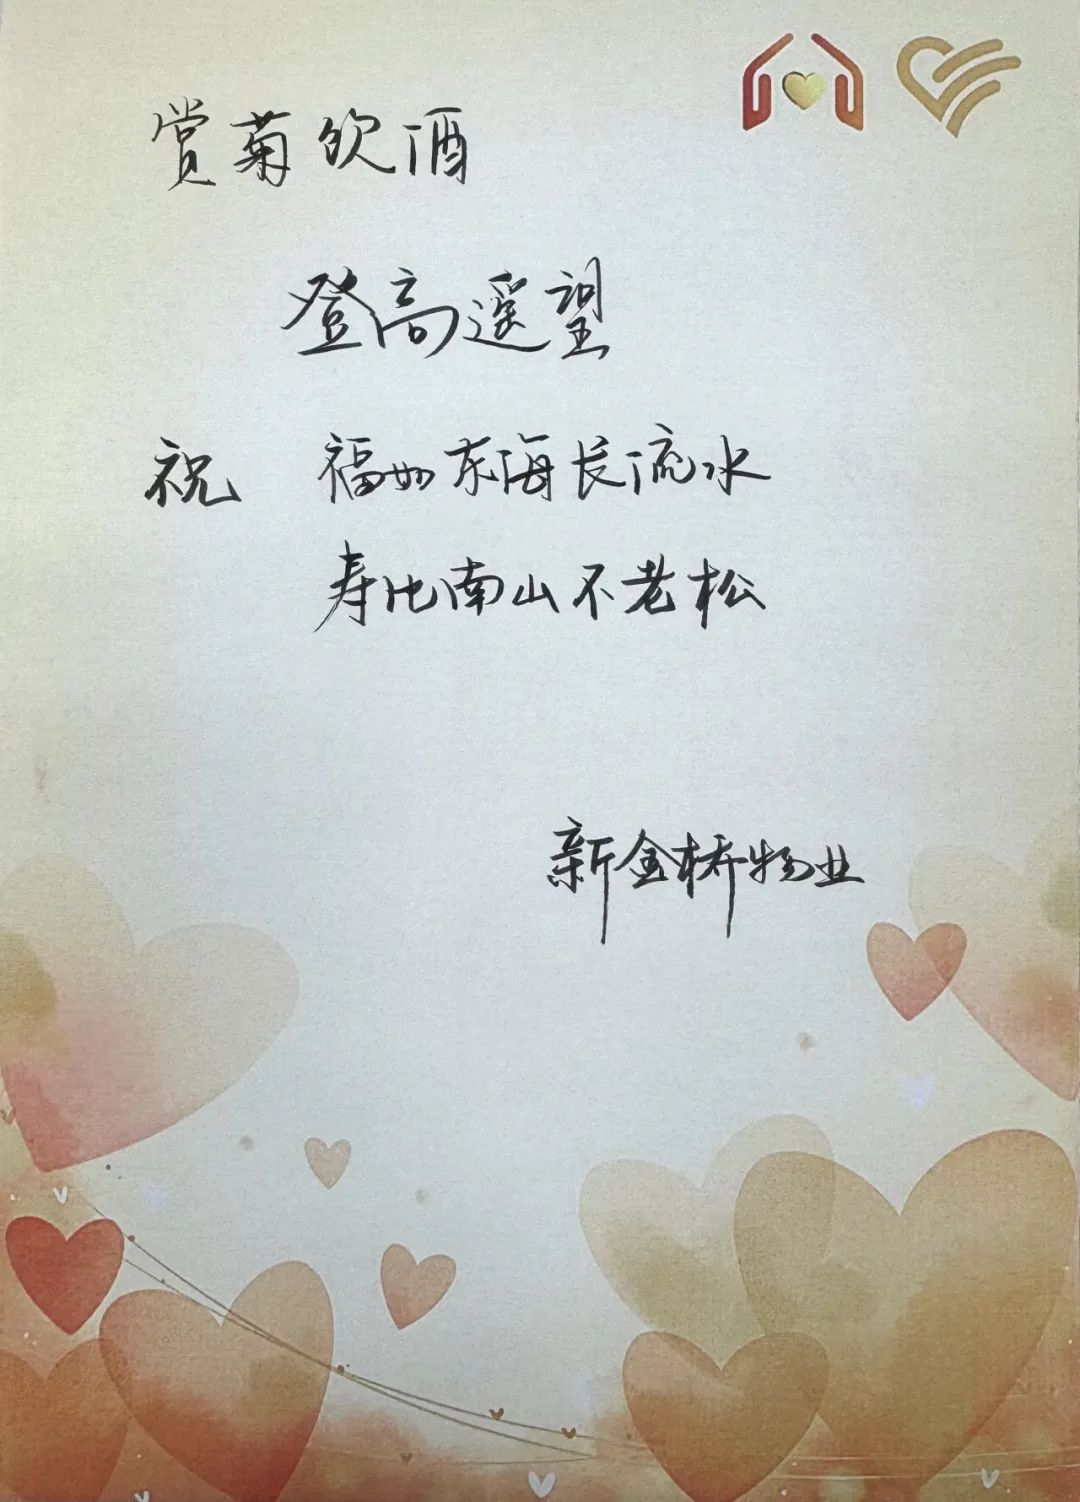 赏菊饮酒
登高遥望
祝 福如东海长流水
寿比南山不老松
新金桥物业